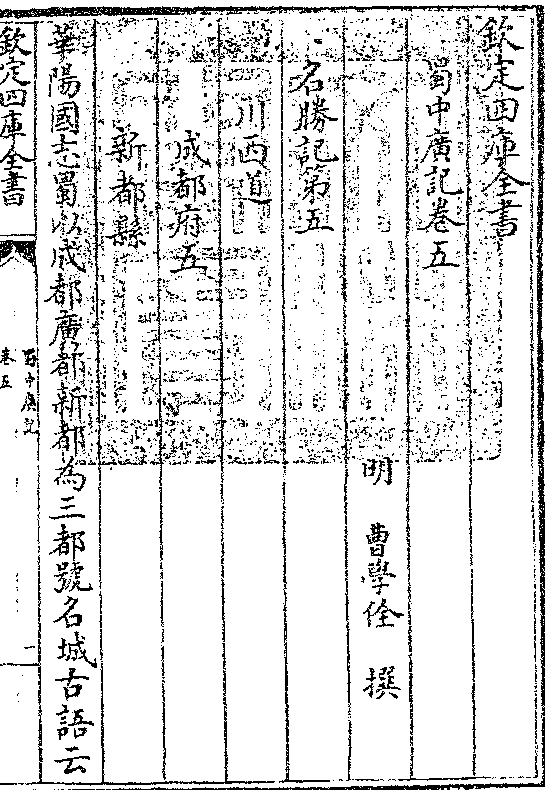 欽定四庫全書
蜀中廣記卷五
明 曹學佺 撰
名勝記第五
川西道
成都府五
新都縣
華陽國志蜀以成都廣都新都為三都號名城古語云
欽定四庫全書
蜀中廣記
卷五
一